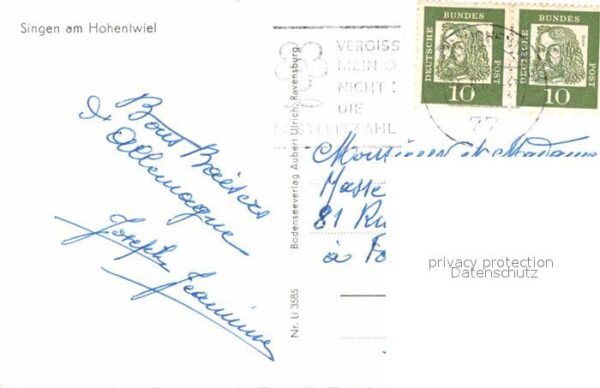 Singen am Hohentwiel
Bons Baisers
d'Allemagne
Joseph Jeannine
Bodenseeverlag Aubert Ulrich, Ravensburg
Nr. Li 3585
VERGISS
MEIN
NICHT
DIE
DEUTSCHE
BUNDES
POST
10
DEUTSCHE
BUNDES
POST
10
77
Monsieur et Madame
Masse
81 Ru
à
privacy protection
Datenschutz